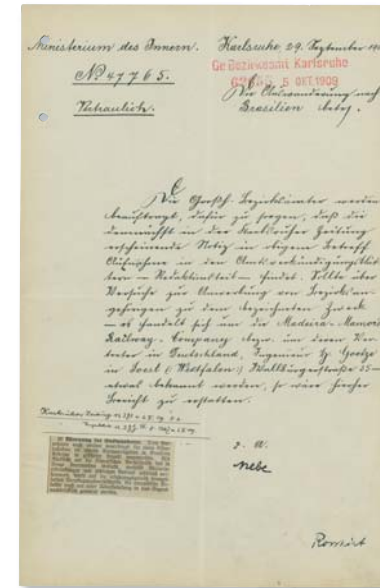 Ministerium des Innern.
Karlsruhe, 29. September 190
№ 47765.
Gr. Bezirksamt Karlsruhe
5 OKT. 1909
Vertraulich.
Die Auswanderung nach
Brasilien betr.
Die Großh. Bezirksämter werden
beauftragt, dafür zu sorgen, daß die
demnächst in der Karlsruher Zeitung
erscheinende Notiz in obigem Betreff
Aufnahme in den Amtsverkündigungsblät-
tern – Redaktionsteil – findet. Sollte über
Versuche zur Anwerbung von Bezirksan-
gehörigen zu dem bezeichneten Zweck
– es handelt sich um die Madeira-Mamoré
Railway-Company bezw. um deren Ver-
treter in Deutschland, Ingenieur H.
in Soest (Westfalen) Wallburgerstraße 55 –
etwas bekannt werden, so wäre hierher
Bericht zu erstatten.
Karlsruher Zeitung